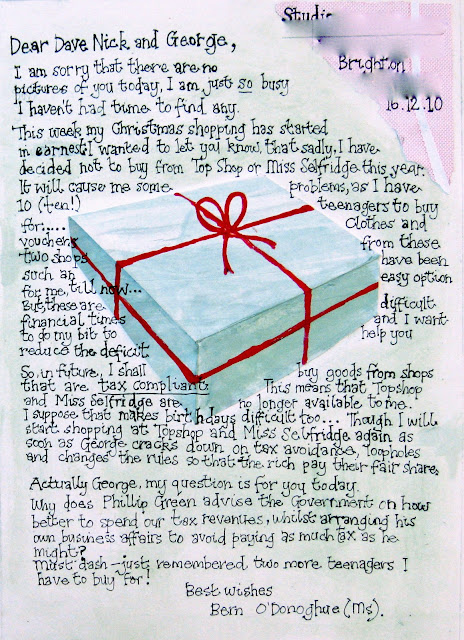 Studio
Brighton
16.12.10
Dear Dave Nick and George,
I am sorry that there are no
pictures of you today, I am just so busy
I haven't had time to find any.
This week my Christmas shopping has started
in earnest! I wanted to let you know, that sadly, I have
decided not to buy from Top Shop or Miss Selfridge this year.
It will cause me some problems, as I have
10 (ten!) teenagers to buy
for..... Clothes and
vouchers from these
two shops have been
such an easy option
for me, till now...
But, these are difficult
financial times and I want
to do my bit to help you
reduce the deficit.
So, in future, I shall buy goods from shops
that are tax compliant. This means that Topshop
and Miss Selfridge are no longer available to me.
I suppose that makes birthdays difficult too... Though I will
start shopping at Topshop and Miss Selfridge again as
soon as George cracks down on tax avoidance, loopholes
and changes the rules so that the rich pay their fair share.
Actually George, my question is for you today.
Why does Phillip Green advise the Government on how
better to spend our tax revenues, whilst arranging his
own business affairs to avoid paying as much tax as he
might?
Must dash - just remembered two more teenagers I
have to buy for!
Best wishes
Bern O'Donoghue (Ms).